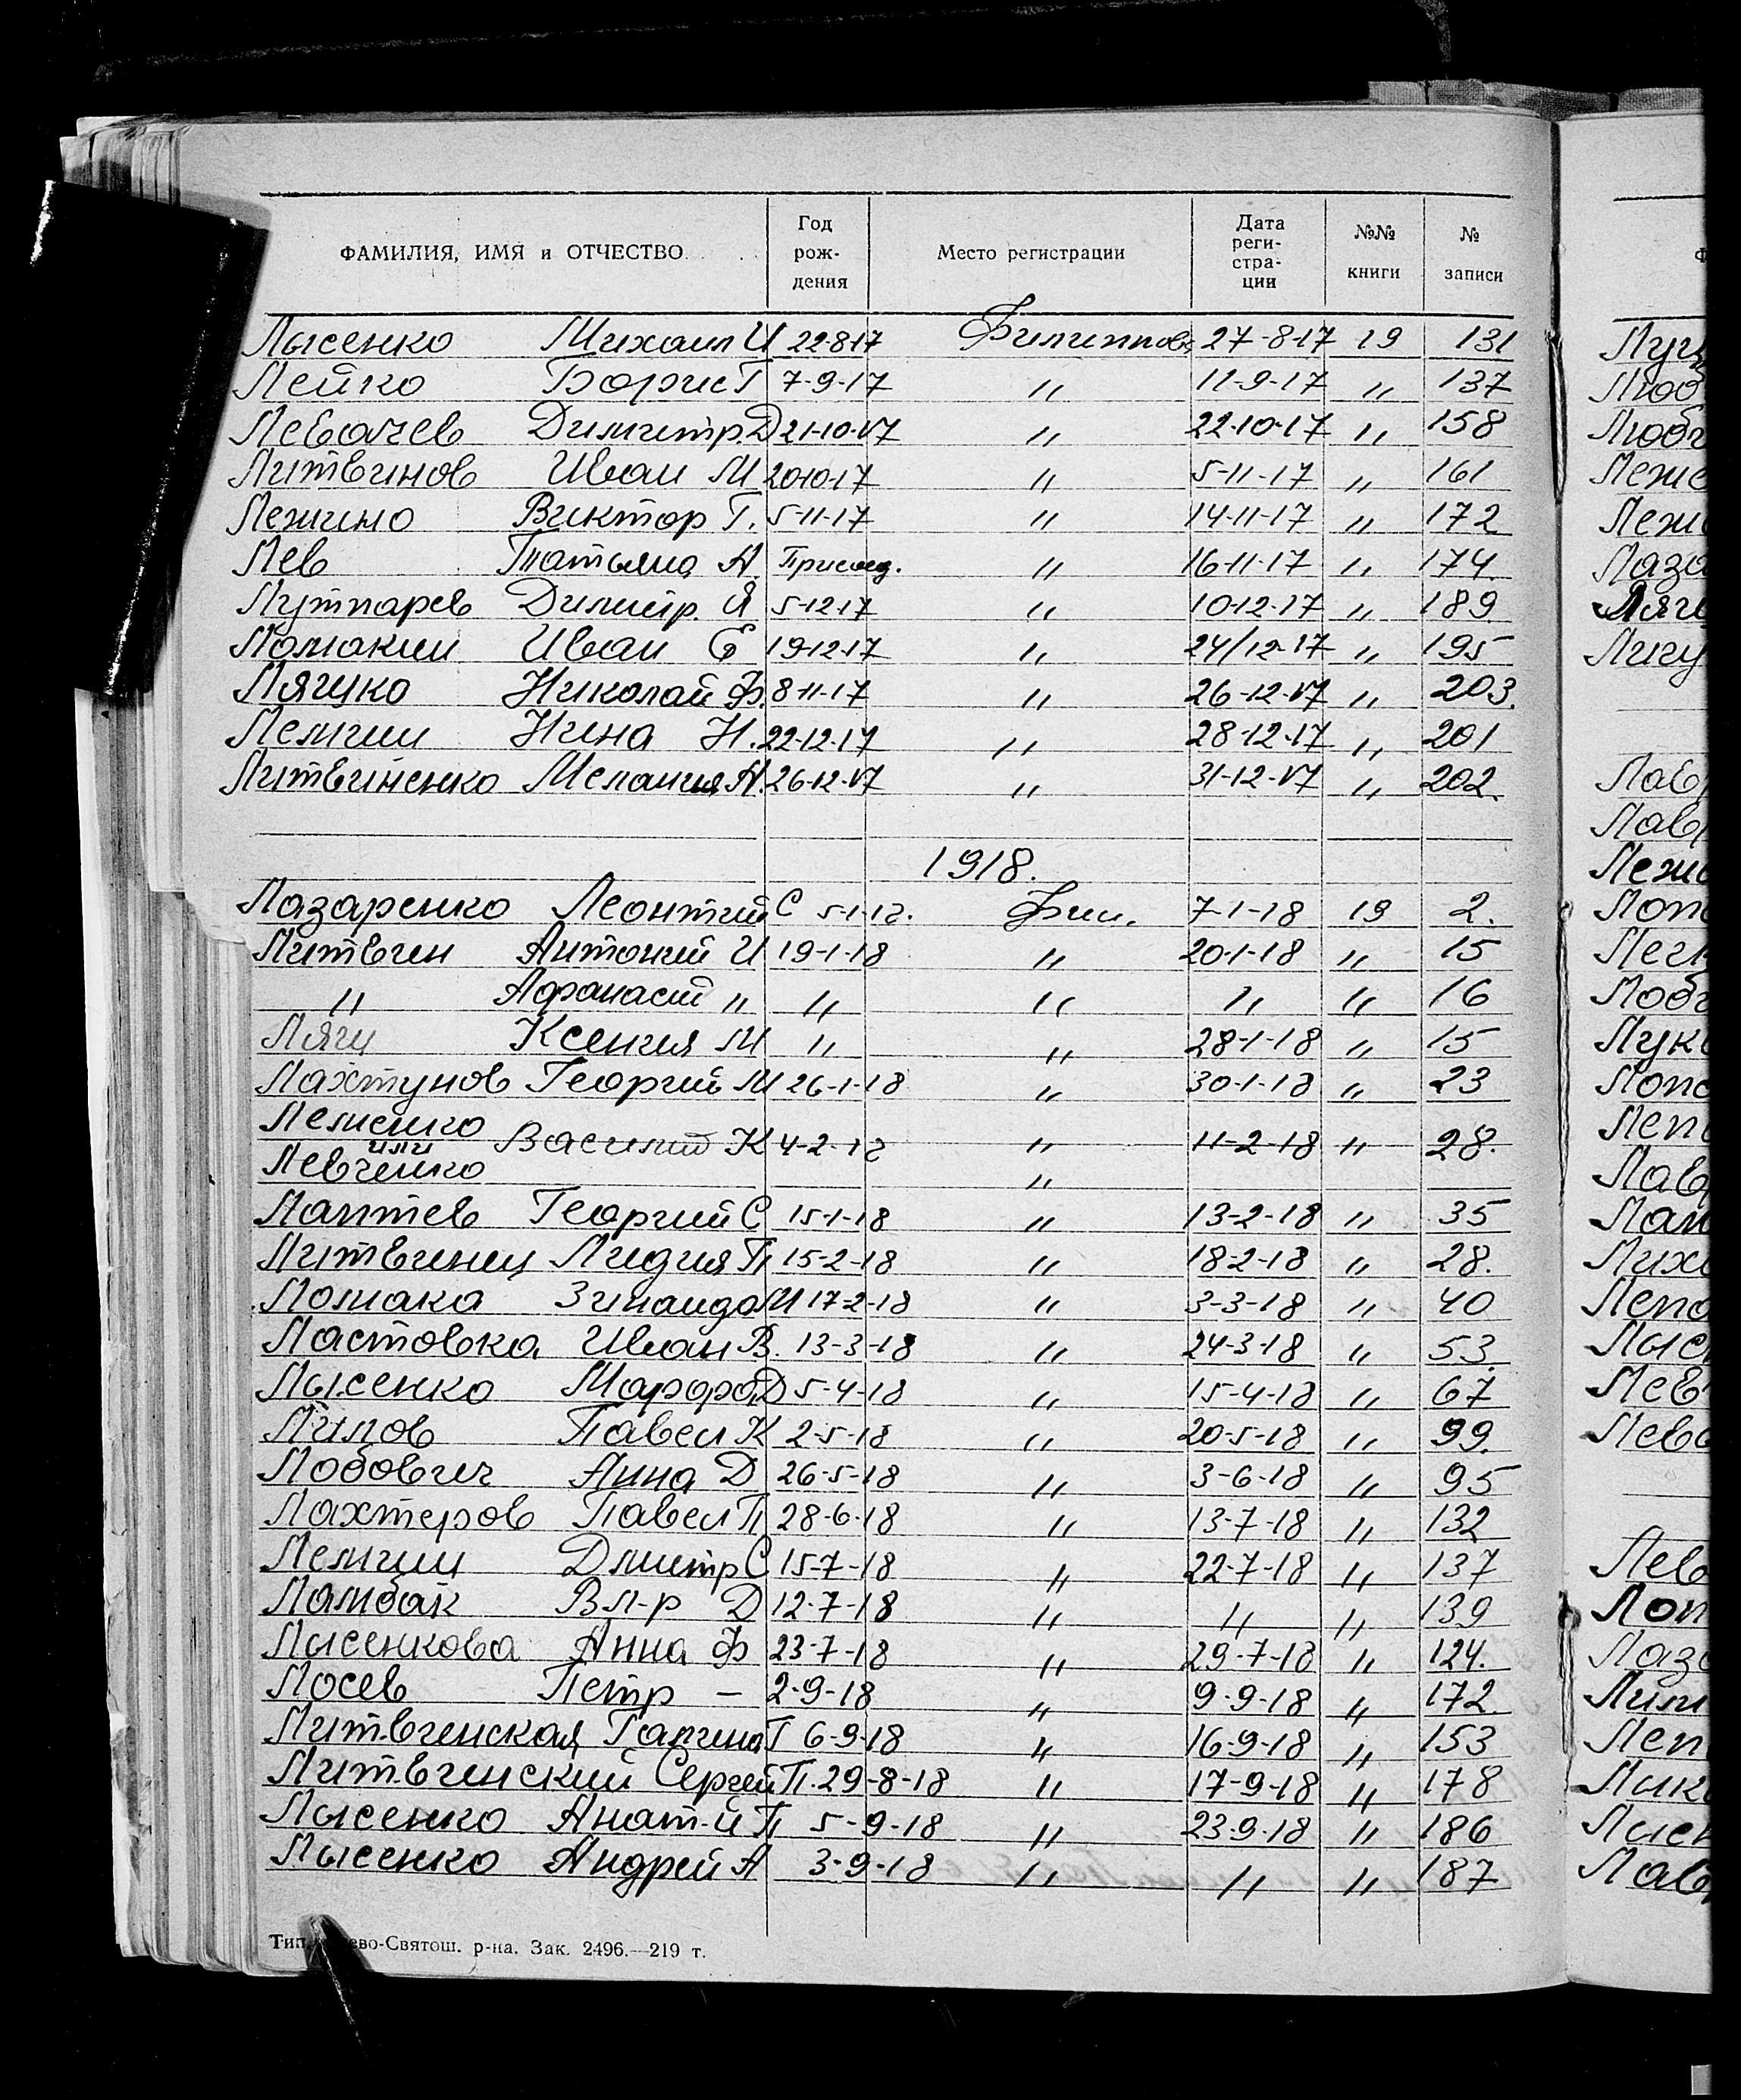 ФАМИЛИЯ, ИМЯ и ОТЧЕСТВО Год рож-дения Место регистрации Дата реги-стра-ции №№ книги № записи
Лысенко Михаил И 22-8-17 Филиппов. 27-8-17 19 131
Лейко Борис Г 7-9-17 " 11-9-17 " 137
Левачев Димитр. Д 21-10-17 " 22-10-17 " 158
Литвинов Иван М 20-10-17 " 5-11-17 " 161
Лежино Виктор Г. 5-11-17 " 14-11-17 " 172
Лев Татьяна А. Присоед. " 16-11-17 " 174
Лутпарев Димитр. Я 5-12-17 " 10-12-17 " 189
Ломакин Иван Е 19-12-17 " 24/12-17 " 195
Лячуко Николай Ф. 8-11-17 " 26-12-17 " 203.
Лемчин Нина Н. 22-12-17 " 28-12-17 " 201
Литвиненко Мелания А. 26-12-17 " 31-12-17 " 202.
1918.
Лазаренко Леонтий С 5-1-18. Фил. 7-1-18 19 2.
Литвин Антоний И 19-1-18 " 20-1-18 " 15
" Афанасий " " " " " 16
Лягу Ксения М " " 28-1-18 " 15
Лахтунов Георгий М 26-1-18 " 30-1-18 " 23
Леменко
или Василий К 4-2-18 " 11-2-18 " 28.
Левченко "
Лаптев Георгий С 15-1-18 " 13-2-18 " 35
Литвинец Лидия П 15-2-18 " 18-2-18 " 28.
Ломака Зинаида М 17-2-18 " 3-3-18 " 40
Ластовка Иван В. 13-3-18 " 24-3-18 " 53.
Лысенко Марфа Д 5-4-18 " 15-4-18 " 67
Лилов Павел К 2-5-18 " 20-5-18 " 99.
Лобович Анна Д 26-5-18 " 3-6-18 " 95
Лахтеров Павел П 28-6-18 " 13-7-18 " 132
Лемчин Дмитр С 15-7-18 " 22-7-18 " 137
Ламбак Вл-р Д 12-7-18 " " " 139
Лысенкова Анна Ф 23-7-18 " 29-7-18 " 124.
Лосев Петр – 2-9-18 " 9-9-18 " 172.
Литвинская Галина Г 6-9-18 " 16-9-18 " 153
Литвинский Сергей П. 29-8-18 " 17-9-18 " 178
Лысенко Анат-й П 5-9-18 " 23-9-18 " 186
Лысенко Андрей А 3-9-18 " " " 187
Тип. ево-Святош. р-на. Зак. 2496.—219 т.